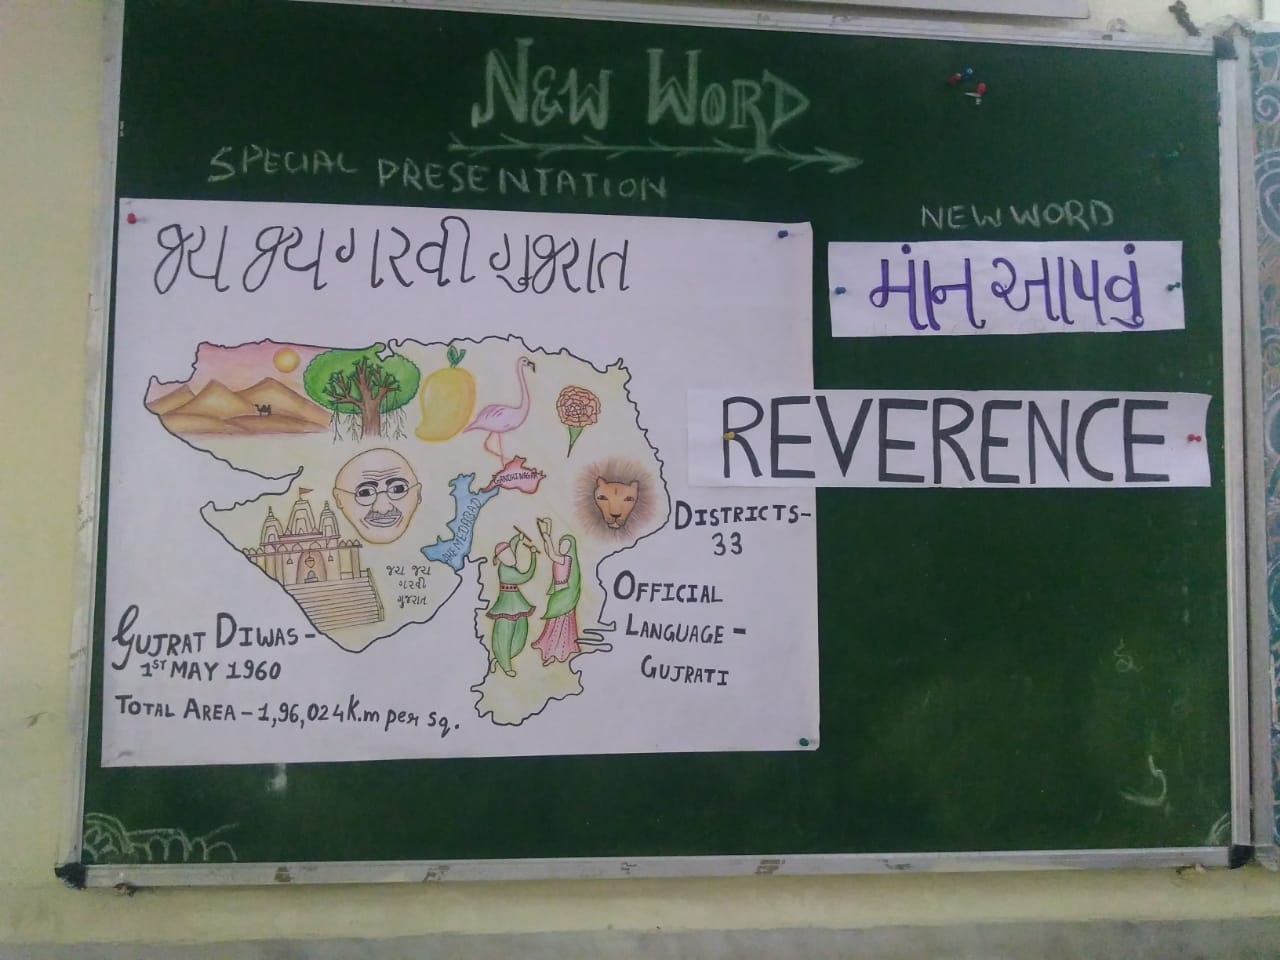 NEW WORD
SPECIAL PRESENTATION
જય જય ગરવી ગુજરાત
GANDHINAGAR
AHEMEDABAD
જય જય
ગરવી
ગુજરાત
DISTRICTS-
33
OFFICIAL
LANGUAGE -
GUJRATI
GUJRAT DIWAS-
1ST MAY 1960
TOTAL AREA - 1,96,024 K.m per sq.
NEW WORD
માંન આપવું
REVERENCE